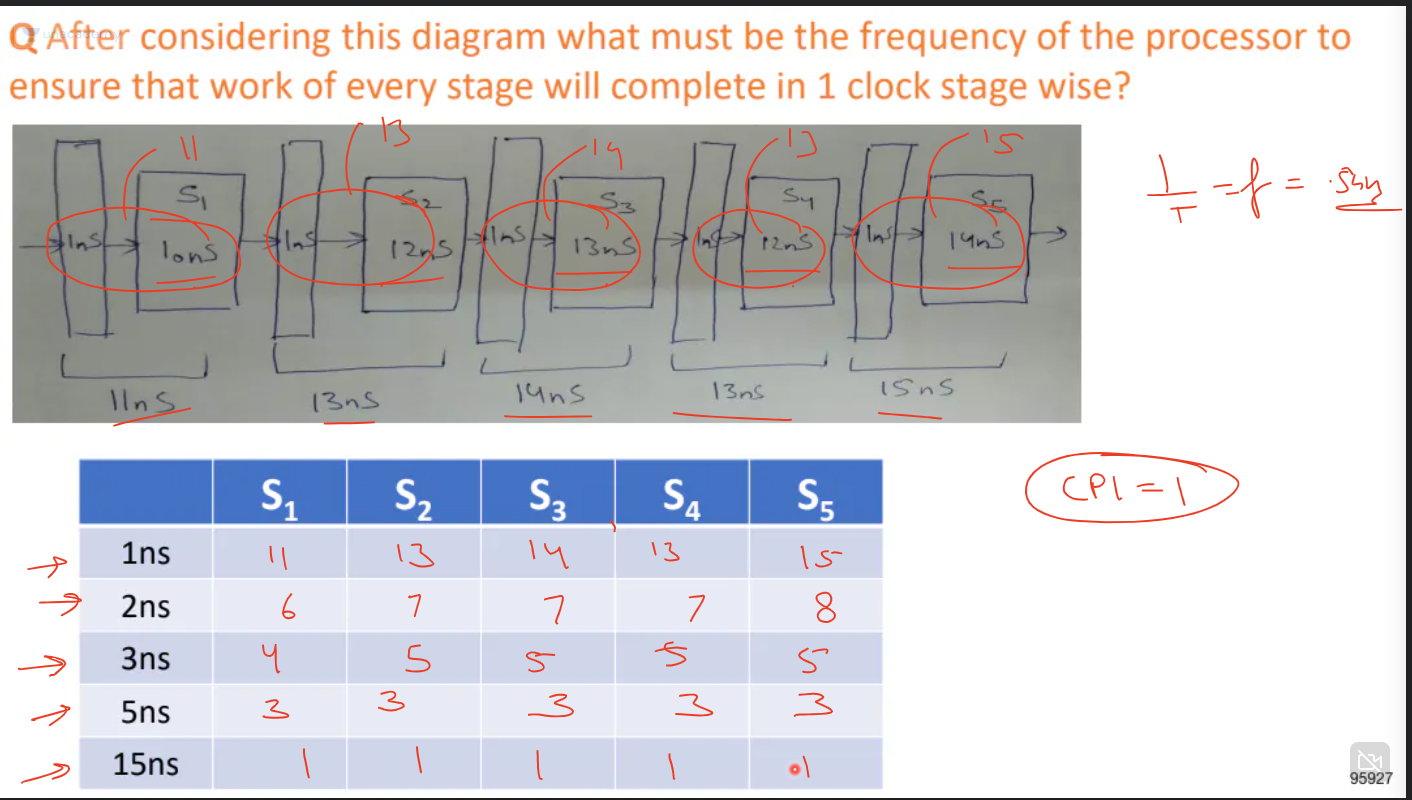 Q After considering this diagram what must be the frequency of the processor to
ensure that work of every stage will complete in 1 clock stage wise?
11 13 14 13 15
S1 S2 S3 S4 S5
1nS 10nS 1nS 12nS 1nS 13nS 1nS 12nS 1nS 14nS
11nS 13nS 14nS 13nS 15nS
1/T = f =
CPI = 1
S1 S2 S3 S4 S5
1ns 11 13 14 13 15
2ns 6 7 7 7 8
3ns 4 5 5 5 5
5ns 3 3 3 3 3
15ns 1 1 1 1 1
95927